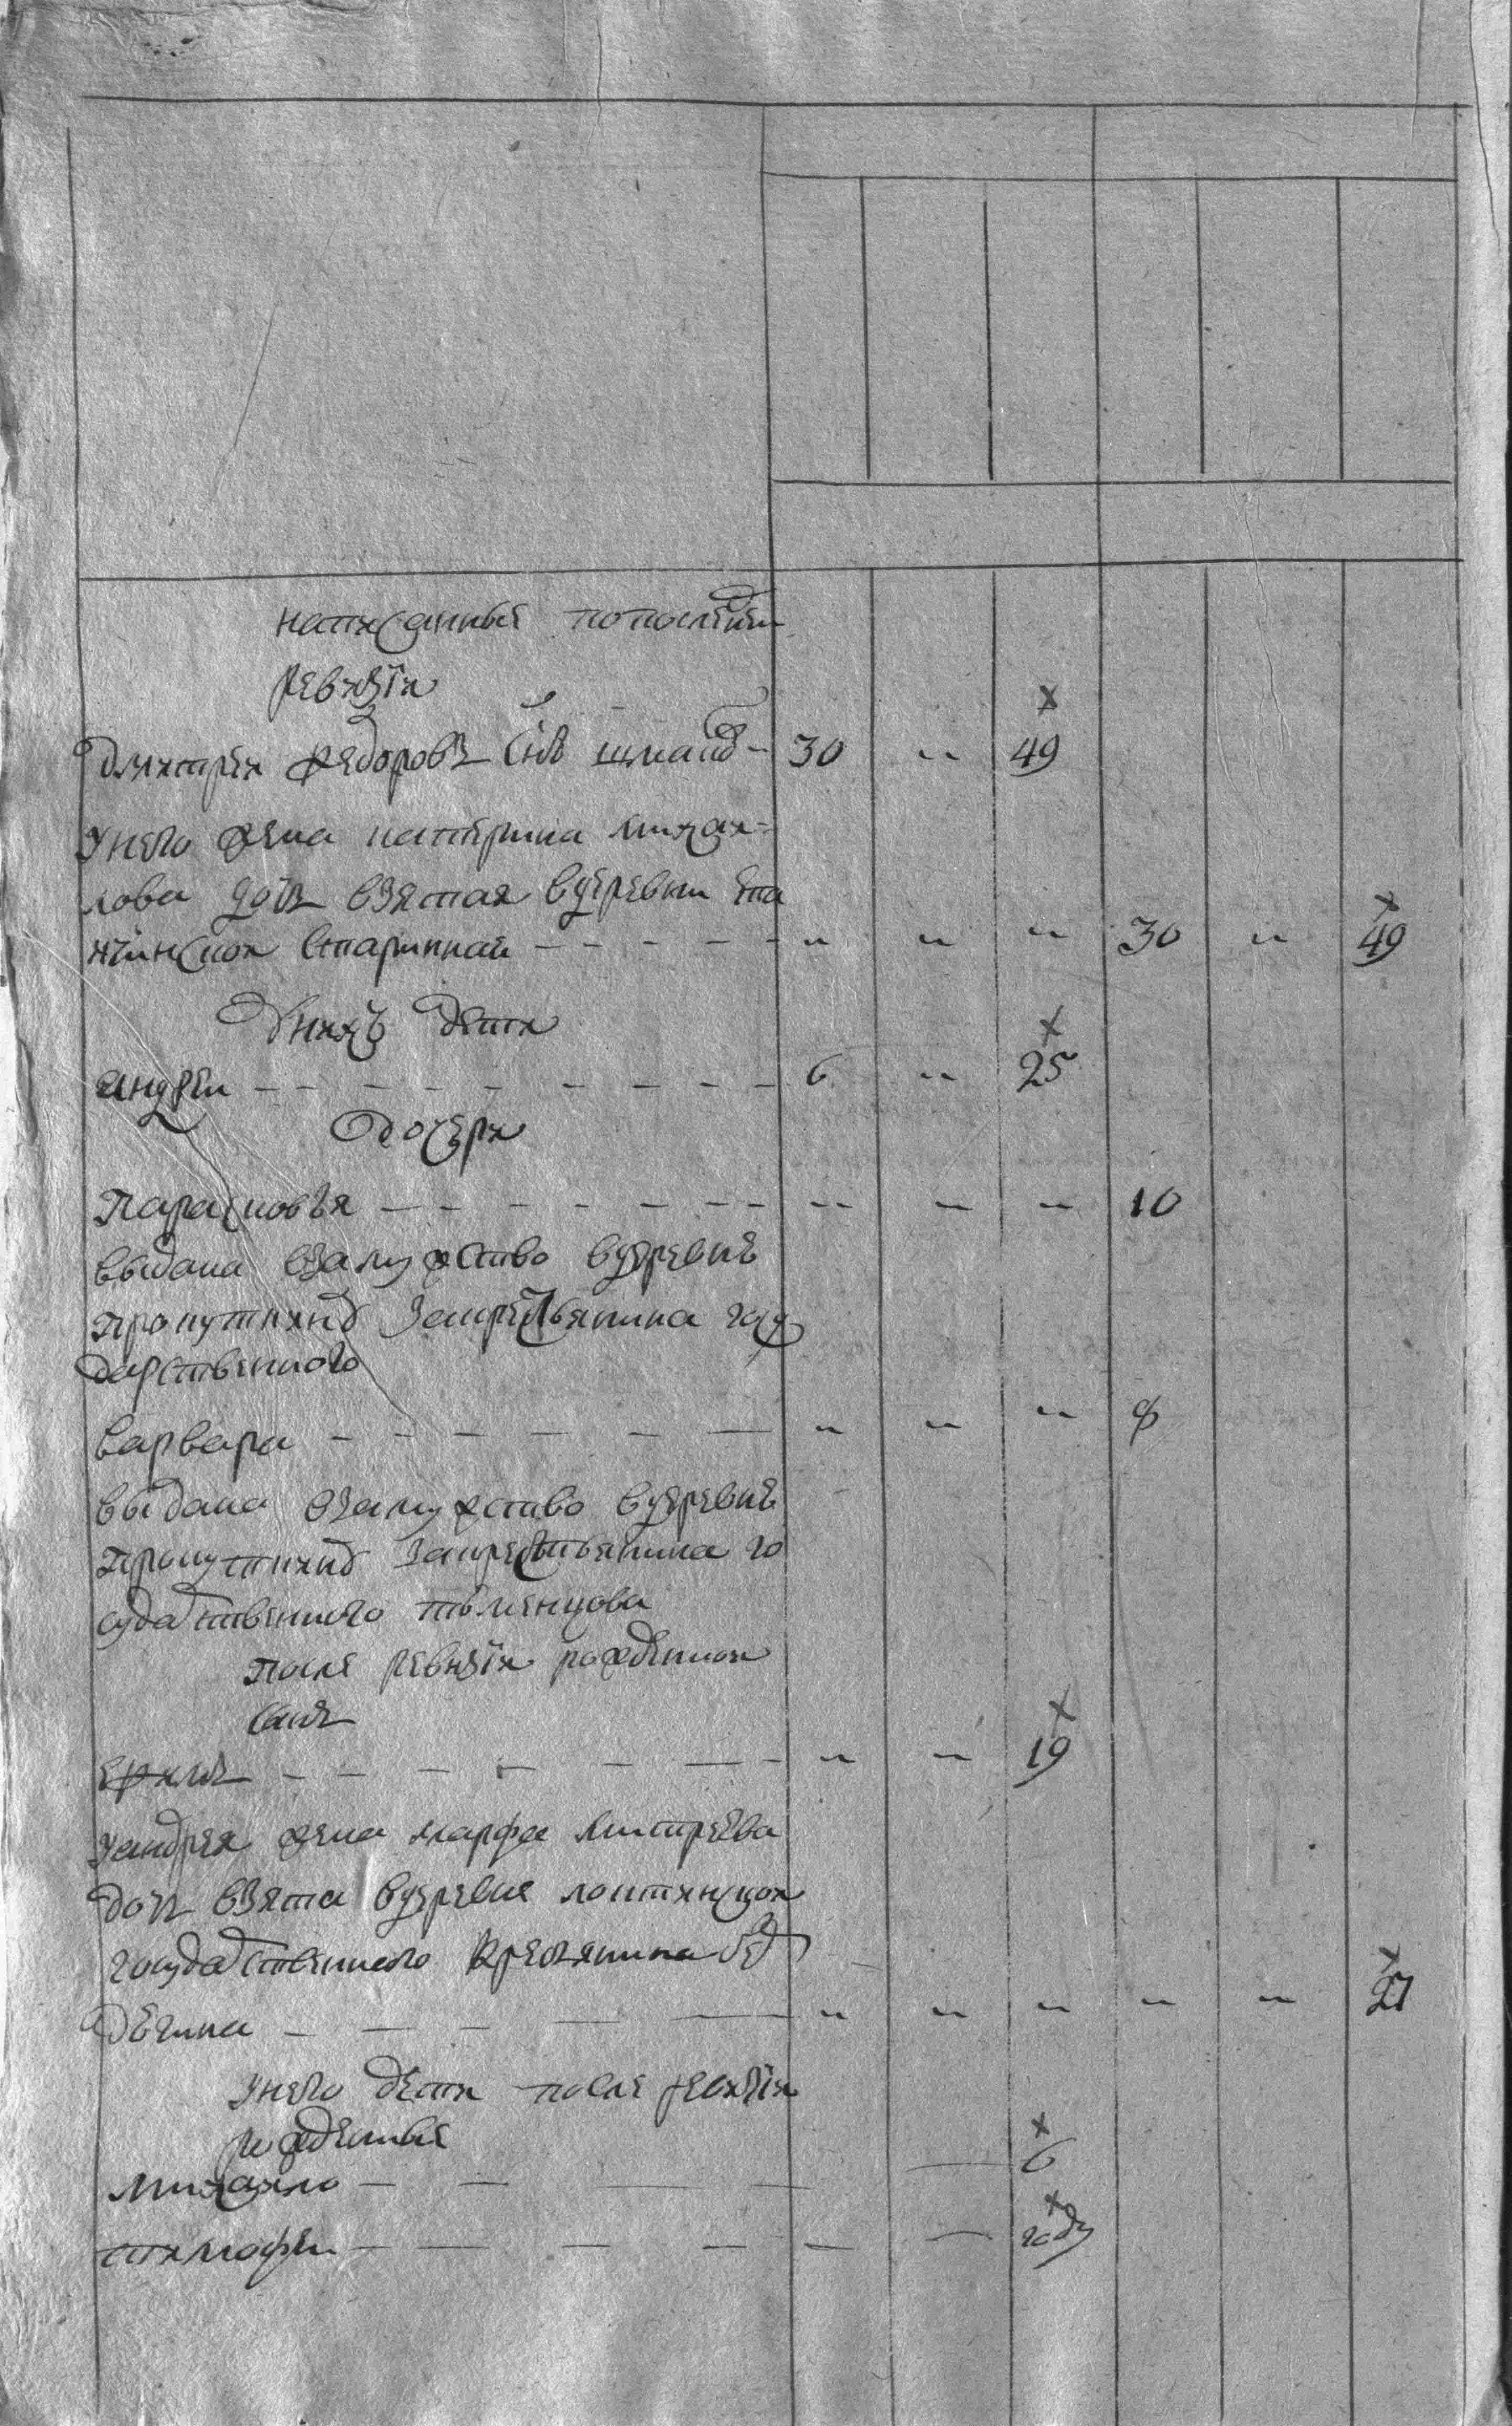 написанные по последней
ревизїи
Дмитреи Федоровъ сынъ 30 -- 49
у него жена катерина михаи=
лова дочь взятая в деревни епа
нчинскои старинная -- -- -- 30 -- 49
у нихъ дети
андреи 6 -- 25
дочери
Парасковья -- -- -- 10
выдана в замужство в деревне
за крестьянина госу
дарственного
варвара -- -- -- 8
выдана в замужство в деревне
за крестьянина го
сударственного тюменцова
после ревизїи рожденнои
сынъ
ефимъ -- -- 19
у андрея жена марфа дмитреева
дочь взята в деревне
государственного крестьянина
-- -- -- -- -- 27
у него дети после ревизїи
рожденные
михаило 6
тимофеи году